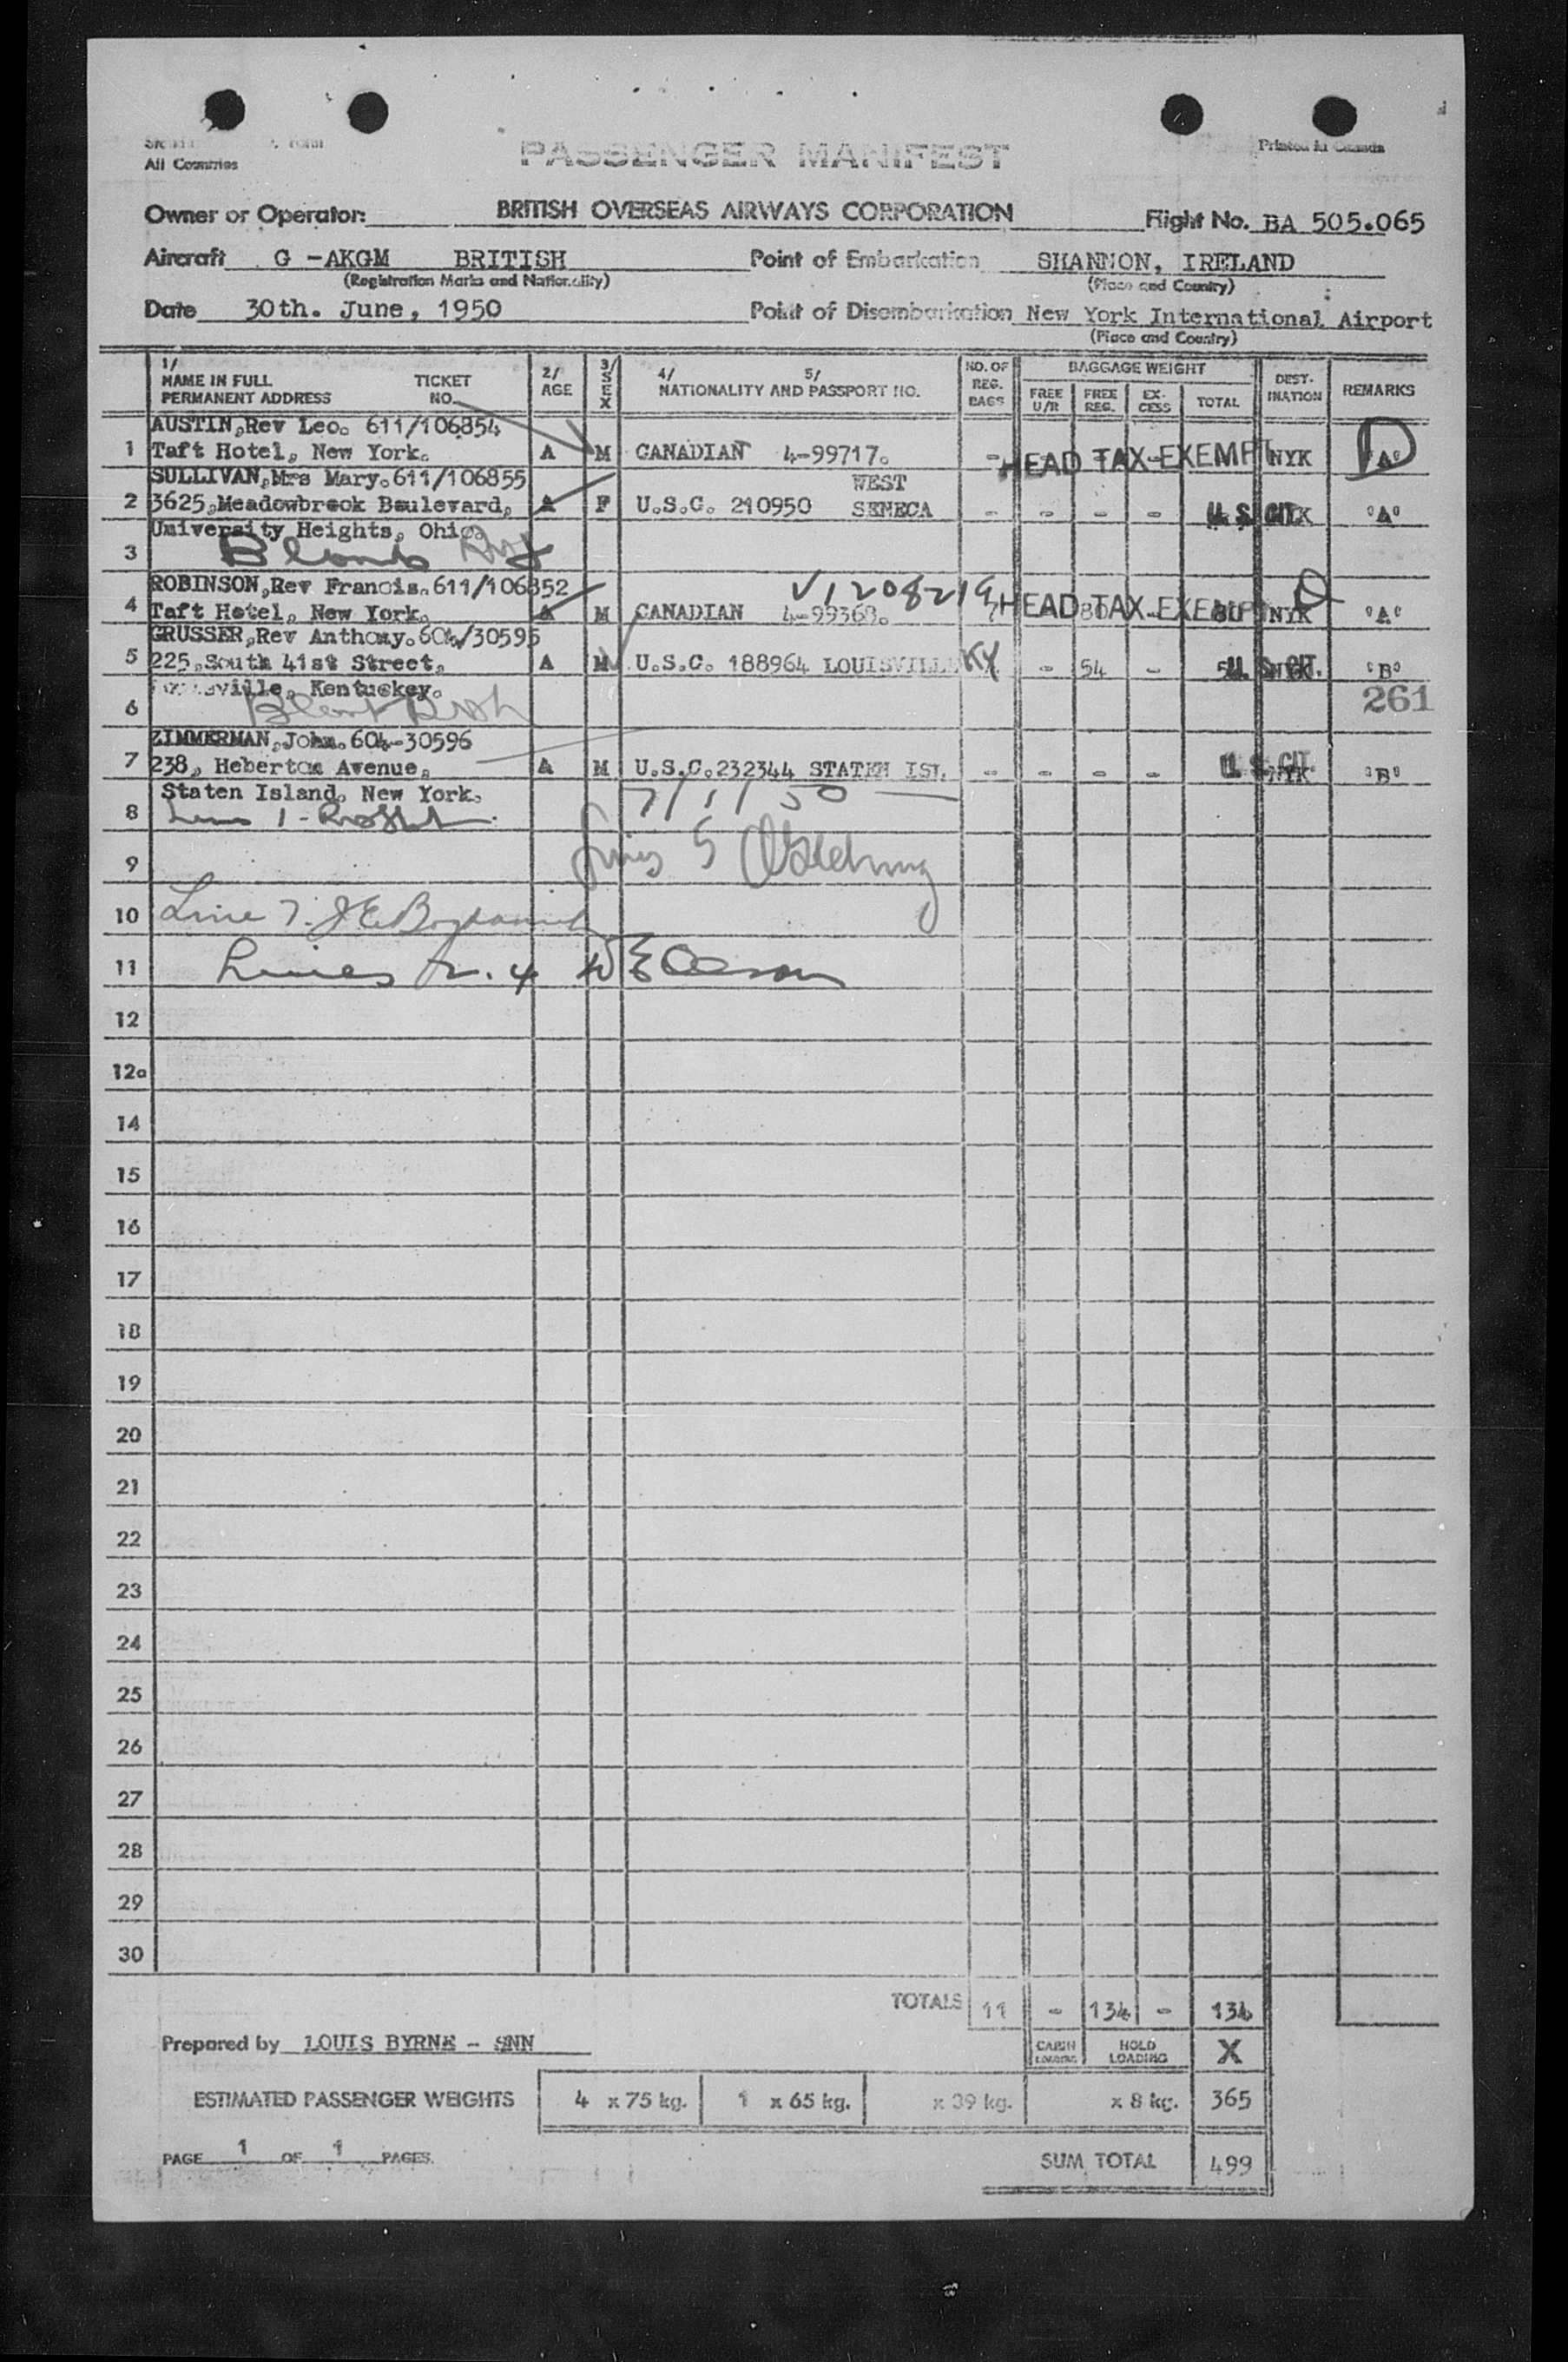 All Countries
PASSENGER MANIFEST
Printed in Canada
Owner or Operator: BRITISH OVERSEAS AIRWAYS CORPORATION Flight No. BA 505.065
Aircraft G -AKGM BRITISH Point of Embarkation SHANNON, IRELAND
(Registration Marks and Nationality) (Place and Country)
Date 30th. June, 1950 Point of Disembarkation New York International Airport
(Place and Country)
1/ NAME IN FULL PERMANENT ADDRESS TICKET NO. 2/ AGE 3/ SEX 4/ 5/ NATIONALITY AND PASSPORT NO. NO. OF REG. BAGS BAGGAGE WEIGHT FREE U/R FREE REG. EX-CESS TOTAL DEST-INATION REMARKS
AUSTIN,Rev Leo. 611/106854
1 Taft Hotel, New York. A M CANADIAN 4-99717. - HEAD TAX-EXEMPT NYK "A" D
SULLIVAN,Mrs Mary.611/106855 WEST
2 3625,Meadowbrook Boulevard, A F U.S.C. 210950 SENECA - - - - U. S. CIT. NYK "A"
University Heights, Ohio.
3
ROBINSON,Rev Francis.611/106852 V1208219
4 Taft Hotel, New York. A M CANADIAN 4-99368. HEAD TAX-EXEMPT 80 - 80 NYK "A"
GRUSSER,Rev Anthony.604/30595
5 225,South 41st Street, A M U.S.C. 188964 LOUISVILLE KY - 54 - U. S. CIT. NYK "B"
Louisville, Kentucky. 261
6
ZIMMERMAN,John.604-30596
7 238, Heberton Avenue, A M U.S.C.232344 STATEN ISL. - - - - U. S. CIT. NYK "B"
Staten Island, New York. 7/1/50
8
9
10 Line 7.
11 Lines
12
12a
14
15
16
17
18
19
20
21
22
23
24
25
26
27
28
29
30
TOTALS 11 - 134 - 134
Prepared by LOUIS BYRNE - SNN CABIN LOADING HOLD LOADING X
ESTIMATED PASSENGER WEIGHTS 4 x 75 kg. 1 x 65 kg. x 39 kg. x 8 kg. 365
PAGE 1 OF 1 PAGES. SUM TOTAL 499